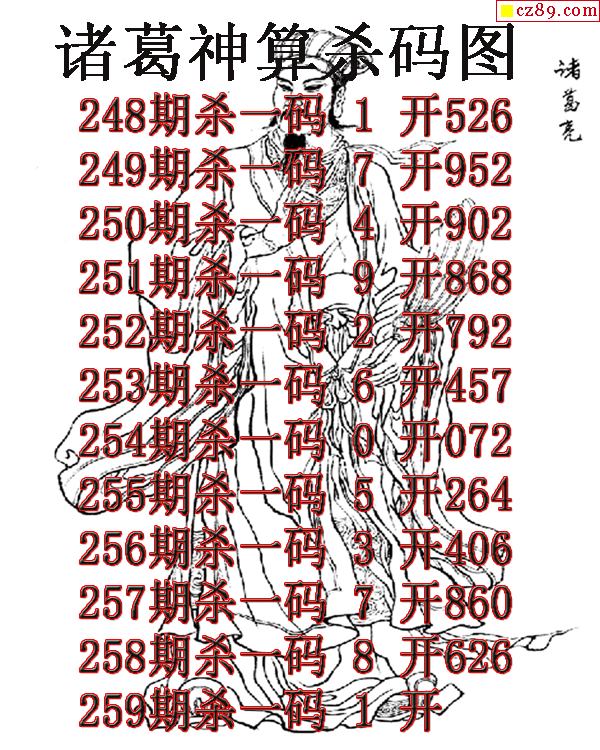 cz89.com
诸葛神算杀码图
诸葛亮
248期杀一码 1 开526
249期杀一码 7 开952
250期杀一码 4 开902
251期杀一码 9 开868
252期杀一码 2 开792
253期杀一码 6 开457
254期杀一码 0 开072
255期杀一码 5 开264
256期杀一码 3 开406
257期杀一码 7 开860
258期杀一码 8 开626
259期杀一码 1 开